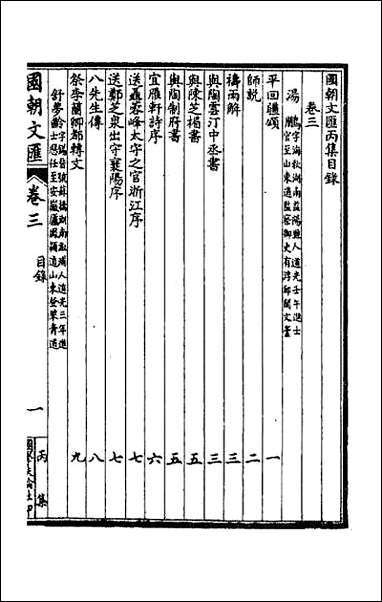 國朝文匯丙集目錄
卷三
湯鵬 字海秋湖南益陽縣人道光壬午進士官至山東道監察御史有浮邱閣文臺
平回疆頌 一
師説 二
禱雨解 三
與陶雲汀中丞書 三
與陳芝楣書 五
與陶制府書 五
宜雁軒詩序 六
送聶蓉峰太守之官浙江序 七
送鄭芝泉出守襄陽序 七
八先生傳 八
祭李蘭卿都轉文 九
舒夢齡 字錫晉號蘇橋湖南溆浦人道光三年進士歷任至安徽廬鳳潁道山東登萊青道
國朝文匯 卷三 目錄 一 丙集